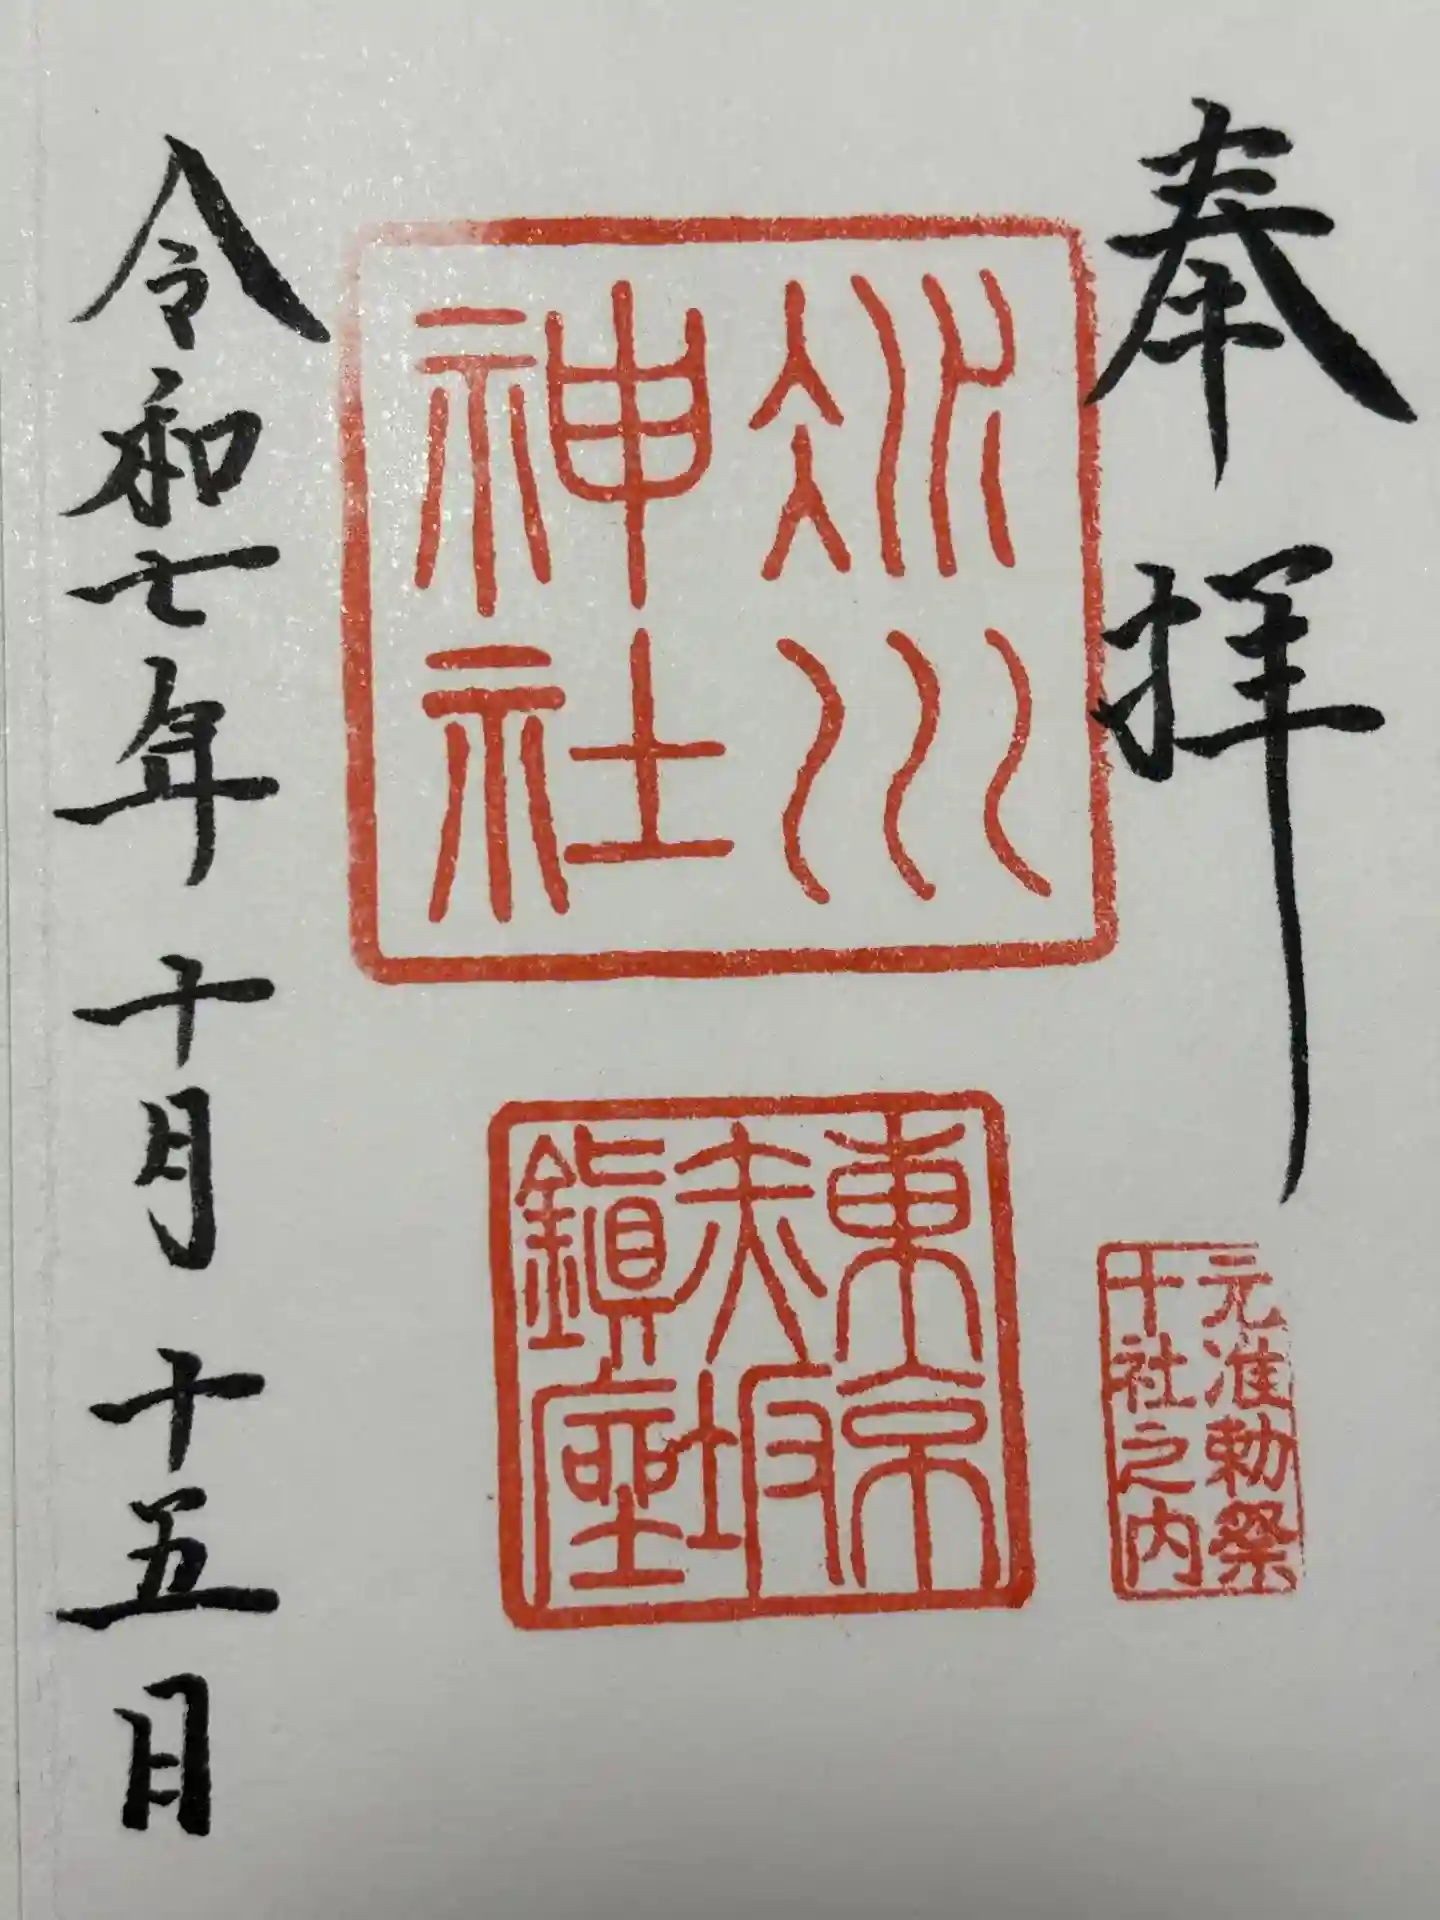 奉拝
元准勅祭
十社之内
氷川
神社
東京
赤坂
鎮座
令和七年十月十五日